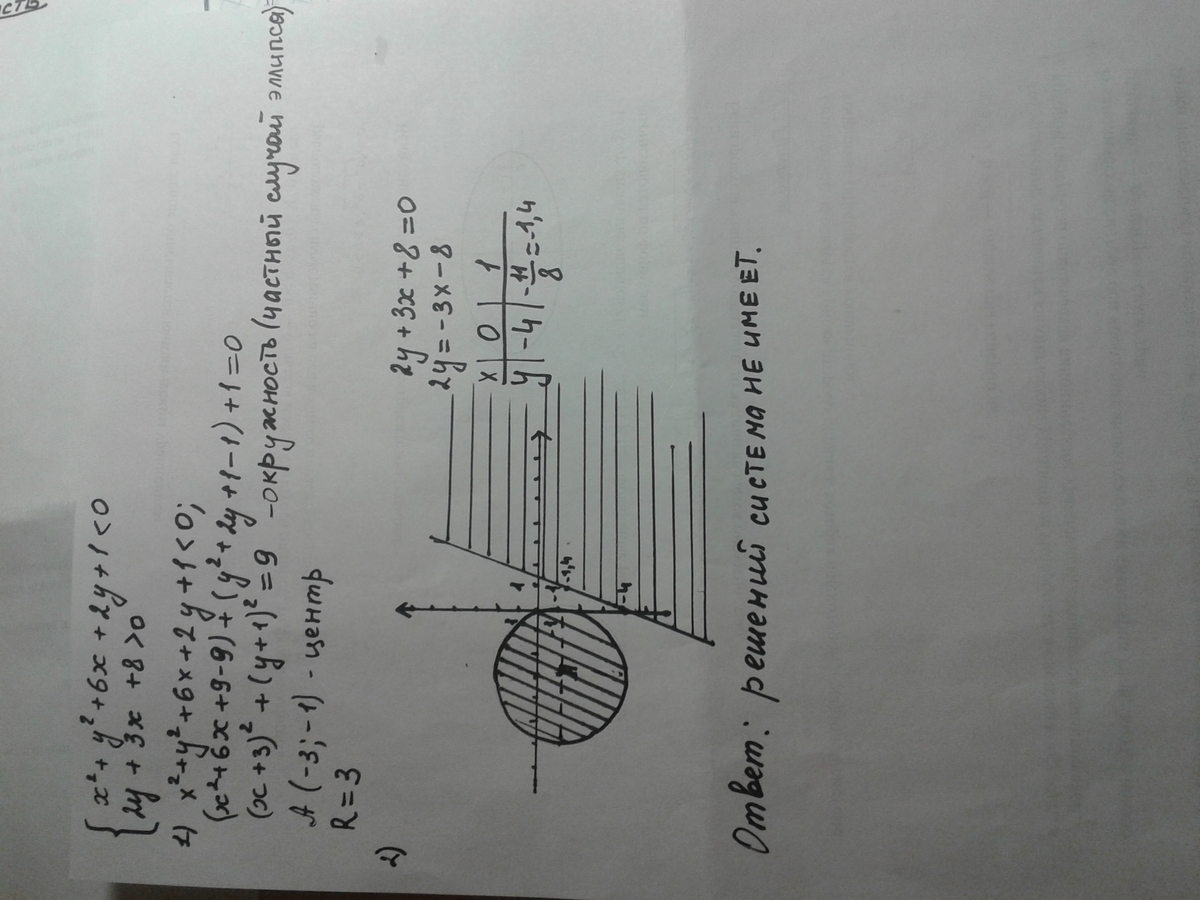 { x² + y² + 6x + 2y + 1 < 0
{ 2y + 3x + 8 > 0
1) x² + y² + 6x + 2y + 1 < 0;
(x² + 6x + 9 - 9) + (y² + 2y + 1 - 1) + 1 = 0
(x + 3)² + (y + 1)² = 9 - окружность (частный случай эллипса)
A (-3; -1) - центр
R = 3
2)
2y + 3x + 8 = 0
2y = -3x - 8
x | 0 | 1
y | -4 | -11/8 = -1,4
1
1
-1
-1,4
-4
Ответ: решений система не имеет.